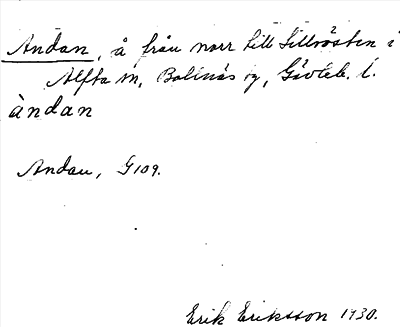 Andan, å från norr till Lillrösten i
Alfta sn, Bollnäs sg, Gävleb. l.
àndan
Andan, G 109.
Erik Eriksson 1930.